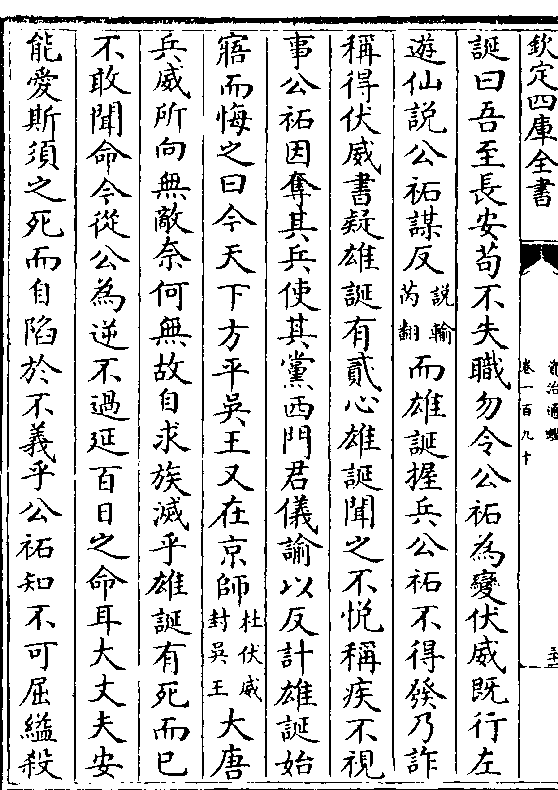 欽定四庫全書
資治通鑑
卷一百九十
誕曰吾至長安苟不失職勿令公祏為變伏威既行左
遊仙說公祏謀反說輸芮翻而雄誕握兵公祏不得發乃詐
稱得伏威書疑雄誕有貳心雄誕聞之不悅稱疾不視
事公祏因奪其兵使其黨西門君儀諭以反計雄誕始
寤而悔之曰今天下方平吳王又在京師杜伏威封吳王大唐
兵威所向無敵奈何無故自求族滅乎雄誕有死而已
不敢聞命今從公為逆不過延百日之命耳大丈夫安
能愛斯須之死而自陷於不義乎公祏知不可屈縊殺